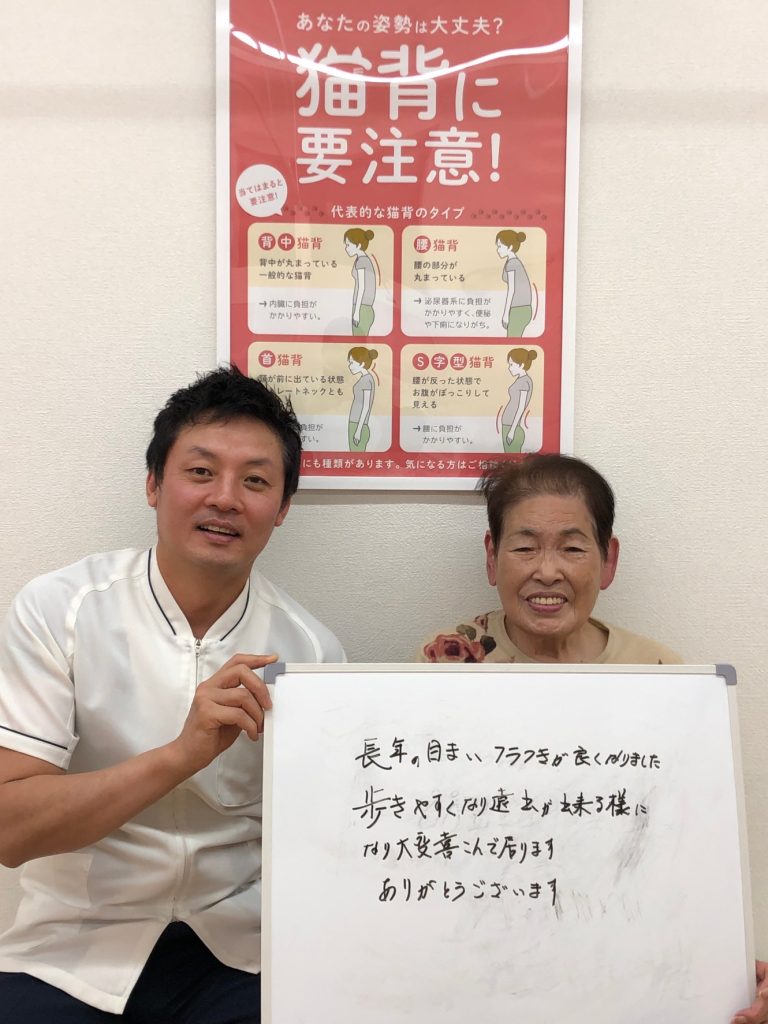 あなたの姿勢は大丈夫?
猫背に
要注意!
当てはまると
要注意!
代表的な猫背のタイプ
背中猫背
背中が丸まっている
一般的な猫背
→ 内臓に負担が
かかりやすい。
腰猫背
腰の部分が
丸まっている
→ 泌尿器系に負担が
かかりやすく、便秘
や下痢になりがち。
首猫背
頭が前に出ている状態
トレートネックとも
負担が
すい。
S字型猫背
腰が反った状態で
お腹がぽっこりして
見える
→ 腰に負担が
かかりやすい。
にも種類があります。気になる方はご相談
長年の目まい フラつきが良くなりました
歩きやすくなり遠出が出来る様に
なり大変喜こんで居ります
ありがとうございます